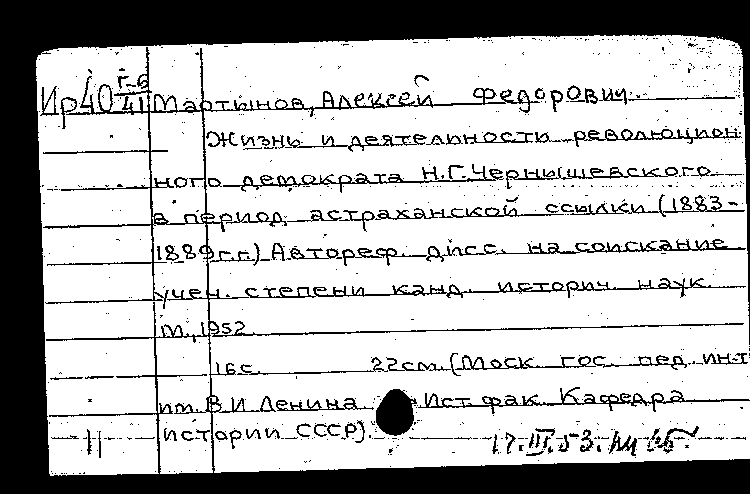 Ир40 Г-6/41 Мартынов, Алексей Федорович.
Жизнь и деятельности революцион
ного демократа Н.Г.Чернышевского
в период астраханской ссылки (1883-
1889г.г.) Автореф. дисс. на соискание
учен. степени канд. историч. наук.
М., 1952.
16с. 22см. (Моск. гос. пед. ин-т
им. В.И Ленина Ист. фак. Кафедра
истории СССР).
11 17.III.53.